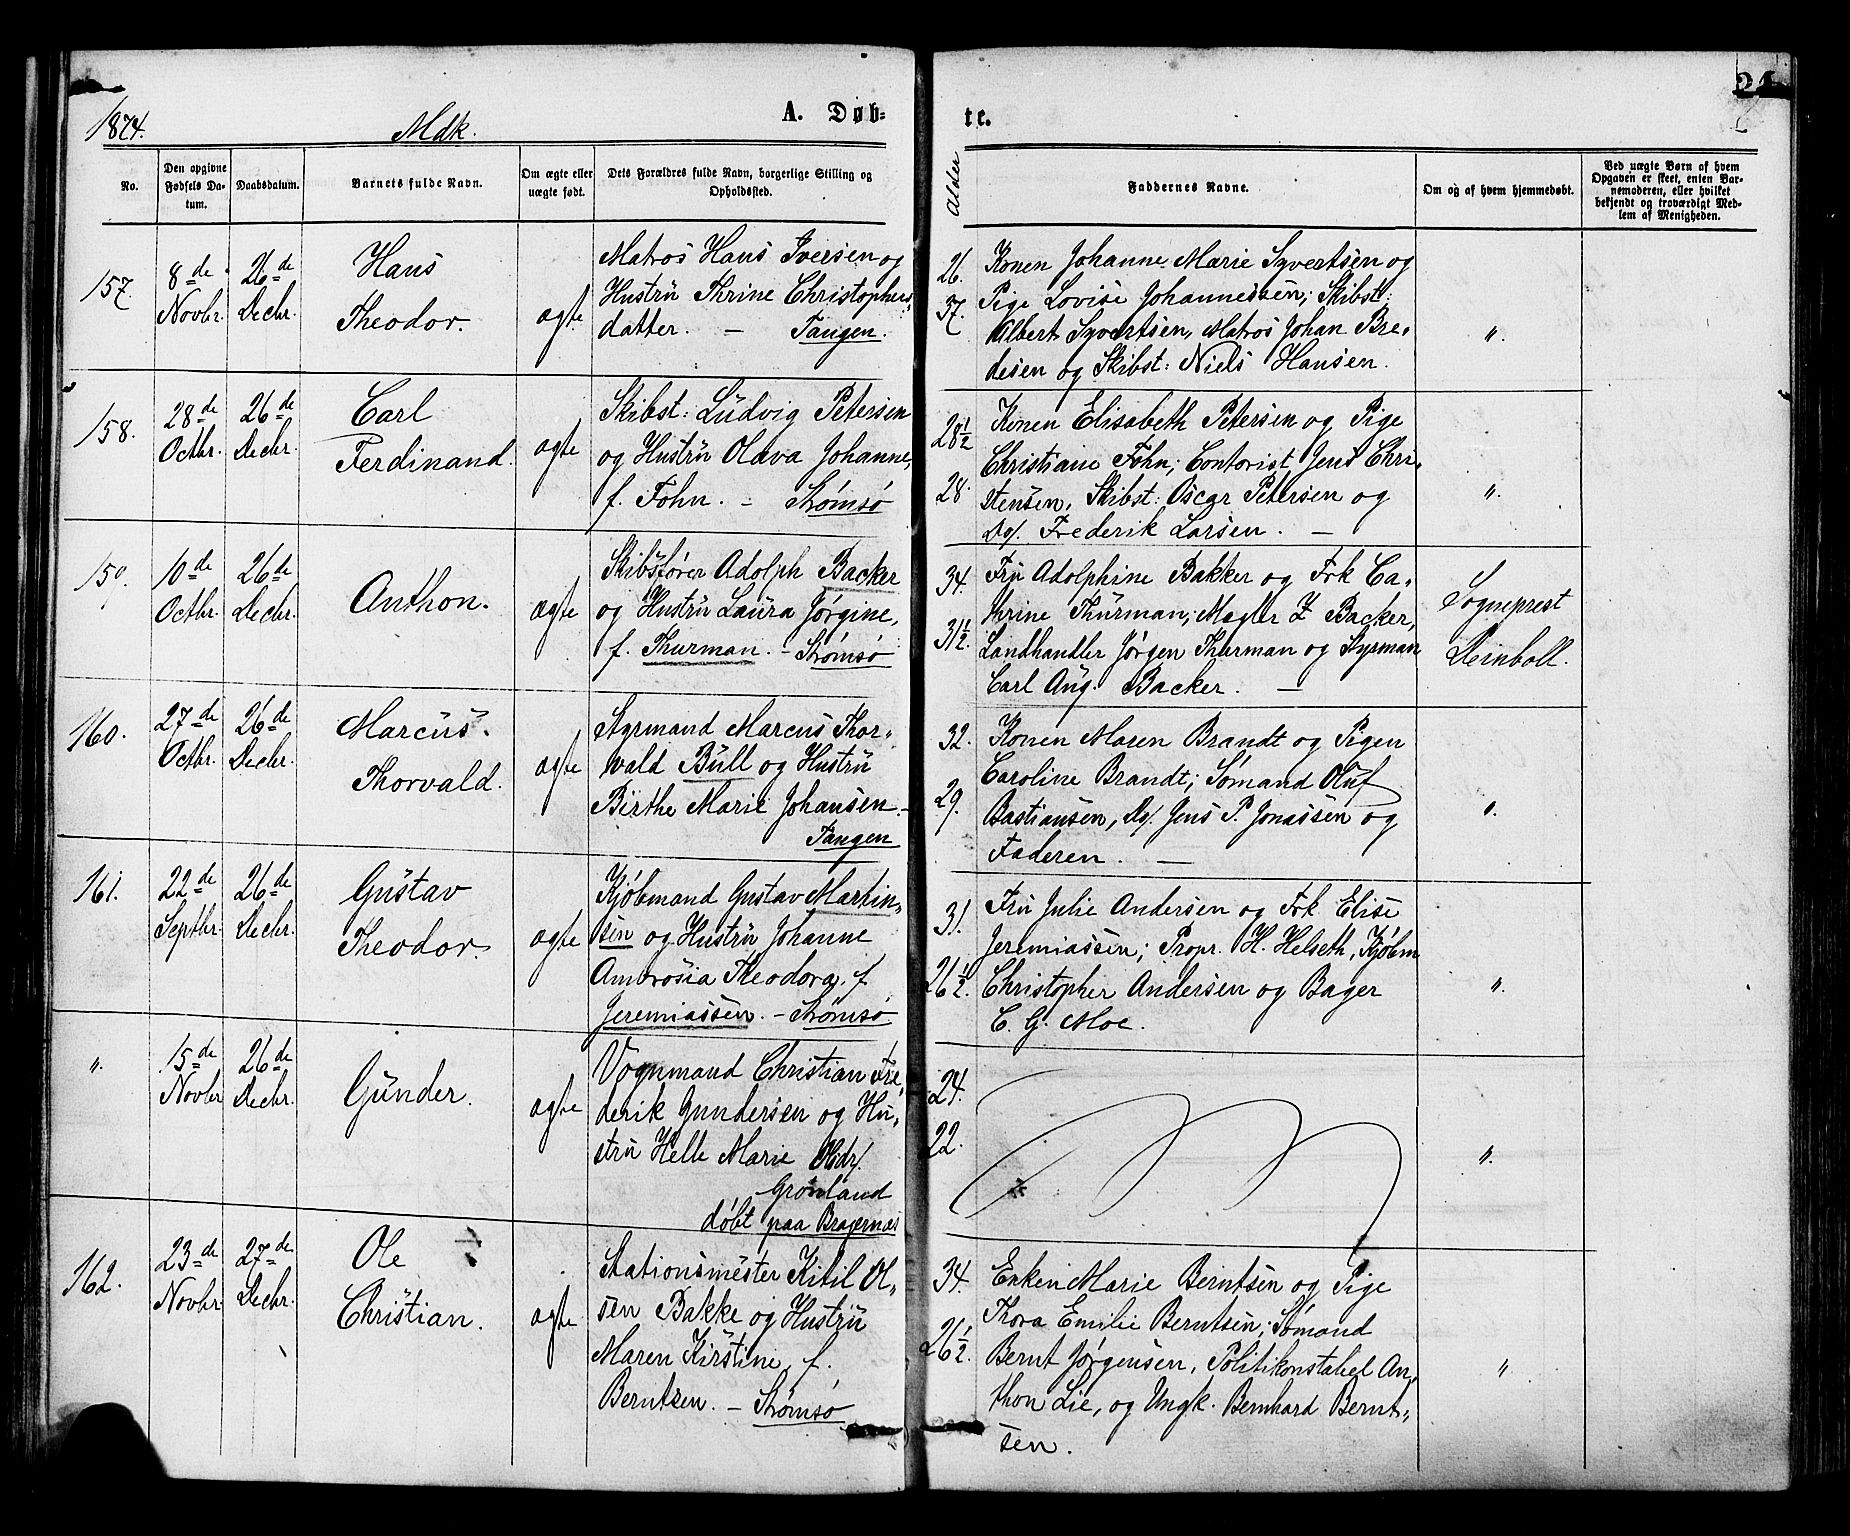 1874. Mdk. A. Døb- te.
No.
Den opgivne Fødsels Da- tum.
Daabsdatum.
Barnets fulde Navn.
Om ægte eller uægte født.
Dets Forældres fulde Navn, borgerlige Stilling og Opholdssted.
Alder
Faddernes Navne.
Om og af hvem hjemmedøbt.
Ved uægte Børn af hvem Opgaven er skeet, enten Bar- nemoderen, eller hvilket bekjendt og troværdigt Med- lem af Menigheden.
157.
8de Novbr.
26de Decbr.
Hans
Theodor.
ægte
Matros Hans Iversen og
Hustru Thrine Christophers
datter. – Tangen.
26.
37.
Konen Johanne Marie Syvertsen og
Pige Lovise Johannessen; Skibst:
Albert Syvertsen, Matros Johan Bre-
desen og Skibst: Niels Hansen.
"
158.
28de Octbr.
26de Decbr.
Carl
Ferdinand.
ægte
Skibst: Ludvig Petersen
og Hustru Olava Johanne,
f. Fohn. – Strømsø
28½
28.
Konen Elisabeth Petersen og Pige
Christiane Fohn; Contorist Jens Chri-
stensen, Skibst: Oscar Petersen og
Do/. Frederik Larsen. –
"
159.
10de Octbr.
26de Decbr.
Anthon.
ægte
Skibsfører Adolph Backer
og Hustru Laura Jørgine,
f. Thurman. – Strømsø
34.
31½.
Fru Adolphine Bakker og Frk Ca-
thrine Thurman; Mægler Z Backer,
Landhandler Jørgen Thurman og Styrman
Carl Aug. Backer. –
Sogneprest
Deinboll.
160.
27de Octbr.
26de Decbr.
Marcus
Thorvald.
ægte
Styrmand Marcus Thor-
vald Bull og Hustru
Birthe Marie Johansen –
Tangen
32.
29.
Konen Maren Brandt og Pigen
Caroline Brandt; Sømand Oluf
Bastiansen, Do/. Jens P. Jonassen og
Faderen. –
"
161.
22de Septbr.
26de Decbr.
Gustav
Theodor.
ægte
Kjøbmand Gustav Martin-
sen og Hustru Johanne
Ambrosia Theodora, f
Jeremiassen. – Strømsø
31.
26½.
Fru Julie Andersen og Frk Elise
Jeremiassen; Propr. H. Helseth, Kjøbm
Christopher Andersen og Bager
C. G. Moe.
"
"
15de Novbr
26de Decbr.
Gunder.
ægte
Vognmand Christian Fre-
derik Gundersen og Hu-
stru Helle Marie
Grønland
døbt paa Bragernæs
24.
22.
"
162.
23de Novbr
27de Decbr.
Ole
Christian.
ægte
Stationsmester Kitil Ol-
sen Bakke og Hustru
Maren Kirstine, f.
Berntsen. – Strømsø
34.
26½.
Enken Marie Berntsen og Pige
Thora Emilie Berntsen; Sømand
Bernt Jørgensen, Politikonstabel An-
thon Lie, og Ungk. Bernhard Bernt-
sen.
"